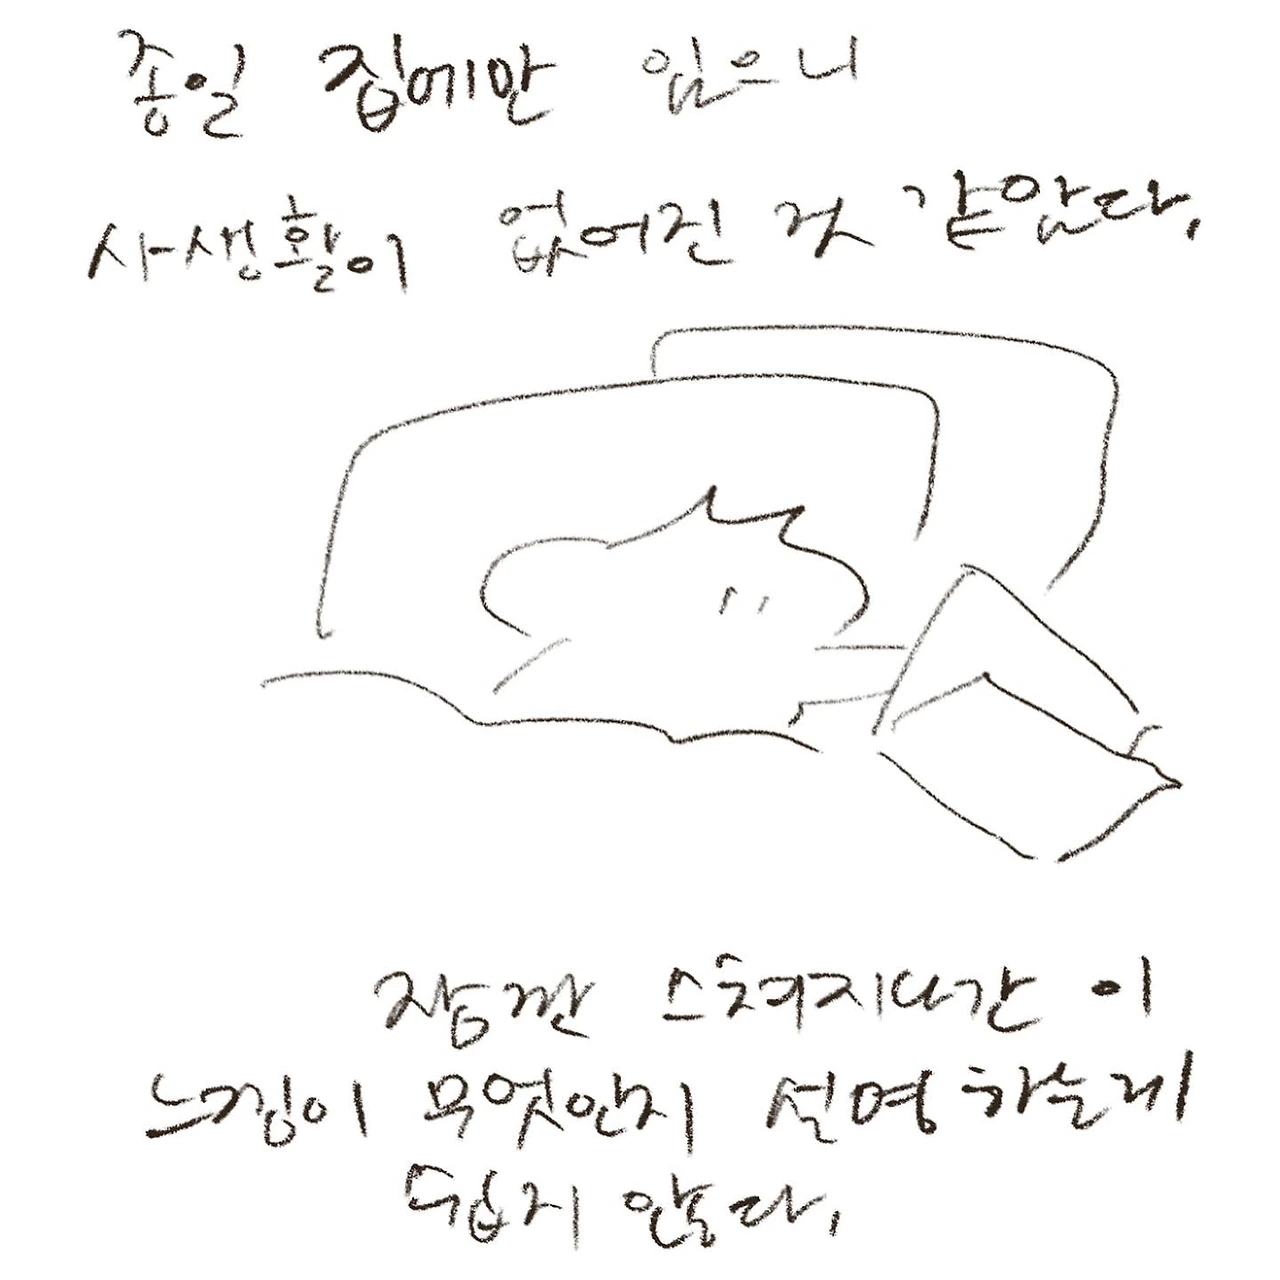 종일 집에만 있으니
사생활이 없어진 것 같았다.
잠깐 스쳐지나간 이
느낌이 무엇인지 설명하는게
쉽지 않다.